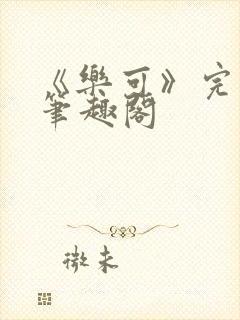 《樂可》完
筆趣閣
微未